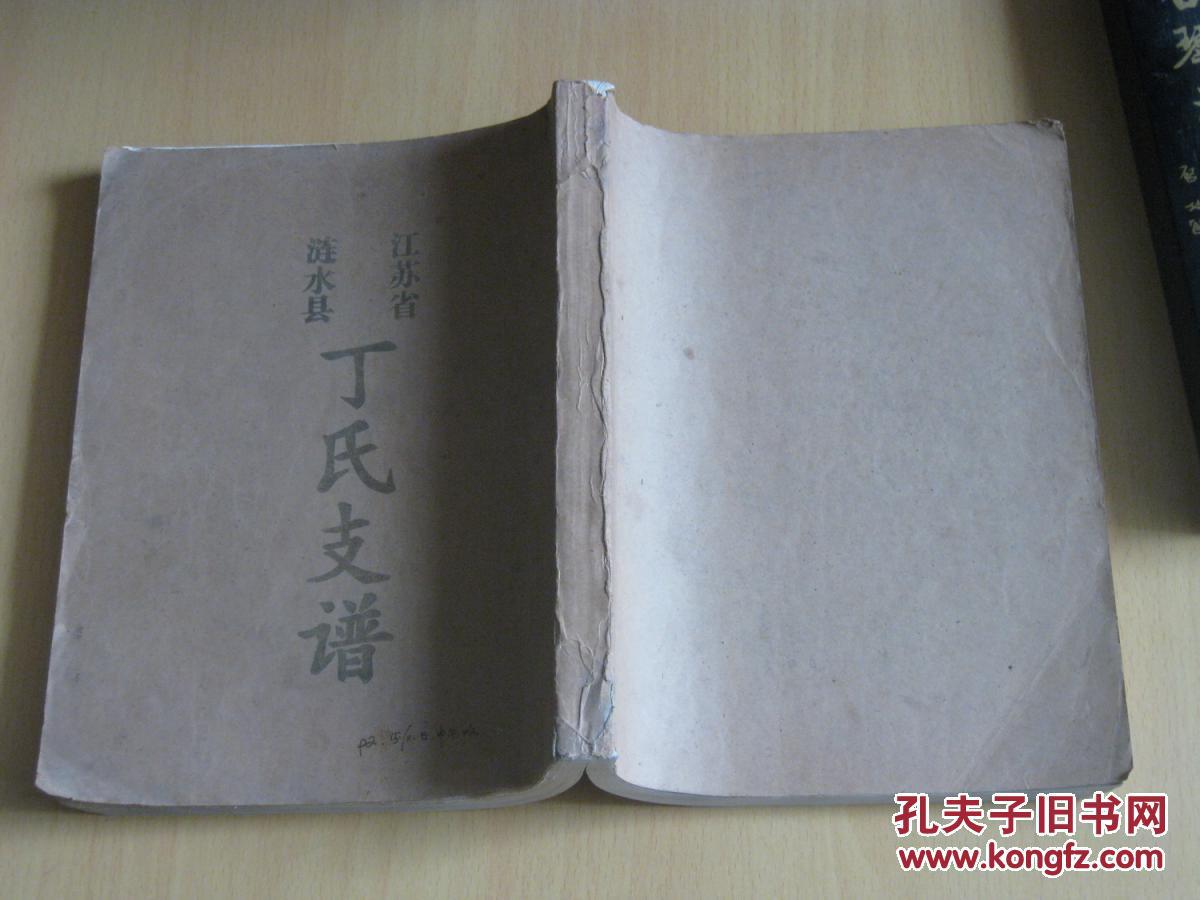 江苏省
涟水县
丁氏支谱
孔夫子旧书网
www.kongfz.com